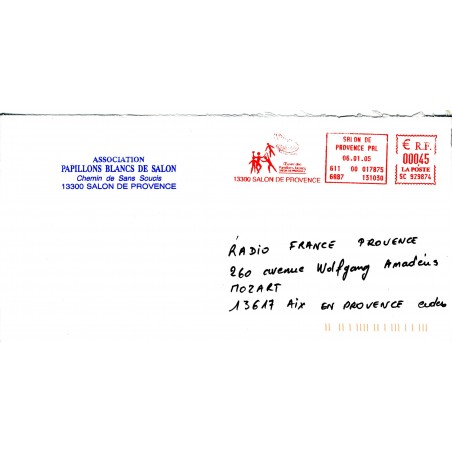 ASSOCIATION
PAPILLONS BLANCS DE SALON
Chemin de Sans Soucis
13300 SALON DE PROVENCE
13300 SALON DE PROVENCE
SALON DE
PROVENCE PAL
06.01.05
611 00 017875
6087 131030
€ R.F.
00045
LA POSTE
SC 929874
RADIO FRANCE PROVENCE
260 avenue Wolfgang Amadéus
MOZART
13617 Aix EN PROVENCE cedex